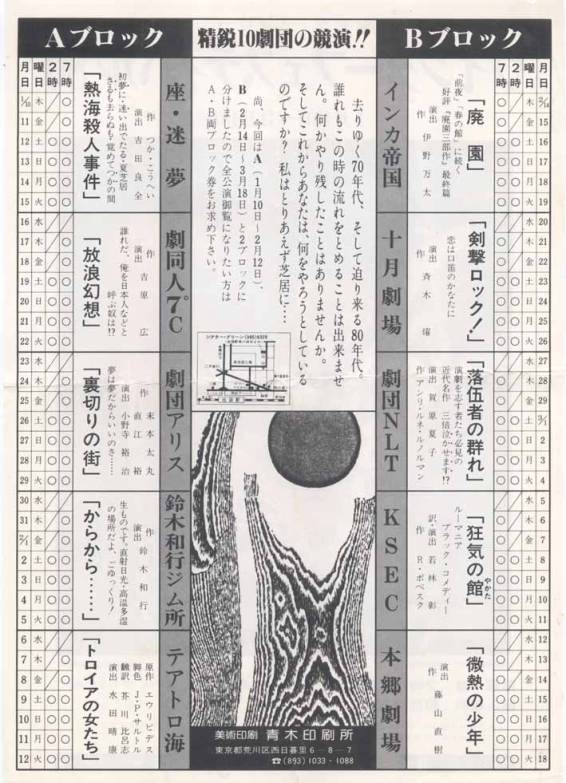 Aブロック
精鋭10劇団の競演!!
Bブロック
月日
曜日
2時
7時
1/10 木
11 金
12 土
13 日
14 月
15 火
16 水
17 木
18 金
19 土
20 日
21 月
22 火
23 水
24 木
25 金
26 土
27 日
28 月
29 火
30 水
31 木
2/1 金
2 土
3 日
4 月
5 火
6 水
7 木
8 金
9 土
10 日
11 月
12 火
「熱海殺人事件」
初夢に・迷い出でたる・夏芝居
さるも去らぬも・覚めてつかの間
作 つか・こうへい
演出 吉田良全
座・迷夢
「放浪幻想」
誰れだ、俺を日本人などと
呼ぶ奴は!?
作
演出 吉原 広
劇同人7℃
「裏切りの街」
夢は夢だからいいのさ……
作 末本太丸
直江裕
演出 小野寺裕治
劇団アリス
「からから……」
生ものです。直射日光・高温多湿
の場所だよ、ごゆっくり!
作 鈴木和行
鈴木和行ジム所
「トロイアの女たち」
原作 エウリピデス
脚色 J・P・サルトル
翻訳 芥川比呂志
演出 水田晴康
テアトロ海
去りゆく70年代、そして迫り来る80年代。
誰れもこの時の流れをとめることは出来ませ
ん。何かやり残したことはありませんか。
そしてこれからあなたは、何をやろうとしている
のですか?私はとりあえず芝居に…
尚、今回はA(1月10日〜2月12日)、
B(2月14日〜3月18日)と2ブロックに
分けましたので全公演御覧になりたい方は
A・B両ブロック券をお求め下さい。
シアター・グリーン
美術印刷 青木印刷所
東京都荒川区西日暮里6-8-7
☎(893)1033・1088
インカ帝国
「廃園」
「前夜」「春の館」に続く
好評『廃園三部作』最終篇
作
演出 伊野万太
十月劇場
「剣撃ロック!」
恋は口笛のかなたに
作
演出 斉木 燿
劇団NLT
「落伍者の群れ」
演劇を志す者たち必見の
近代名作 三倍泣かせます!?
演出 賀原夏子
作 アンリ・ルネ・ルノルマン
KSEC
「狂気の館」
やかた
ルーマニア
ブラック・コメディー
訳・演出 若林 彰
作 R・ボベスク
本郷劇場
「微熱の少年」
作
演出 藤山直樹
7時
2時
曜日
月日
木 2/14
金 15
土 16
日 17
月 18
火 19
水 20
木 21
金 22
土 23
日 24
月 25
火 26
水 27
木 28
金 29
土 3/1
日 2
月 3
火 4
水 5
木 6
金 7
土 8
日 9
月 10
火 11
水 12
木 13
金 14
土 15
日 16
月 17
火 18